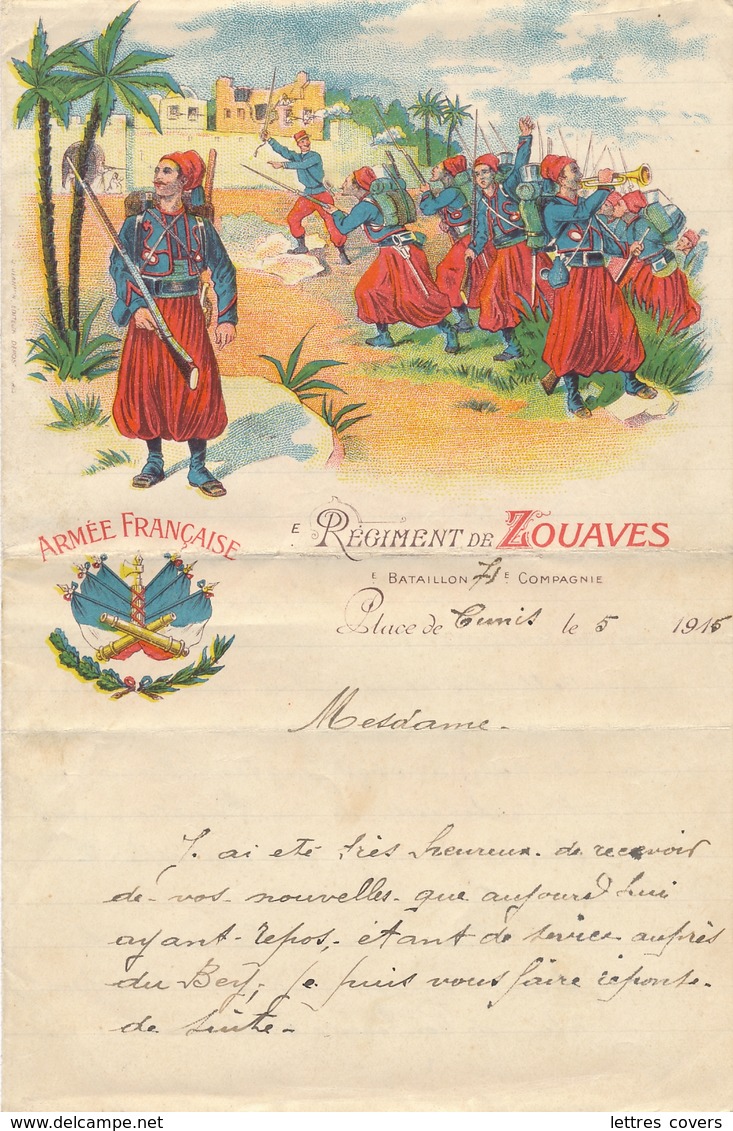 ARMÉE FRANÇAISE
E RÉGIMENT DE ZOUAVES
E BATAILLON E COMPAGNIE
Place de Tunis le 5 1915
Mesdame.
J. ai eté très heureux. de recevoir
de-vos-nouvelles-que aujourd hui
ayant-repos, étant de service auprès
du Bey, je puis vous faire réponse.
de suite-
lettres covers